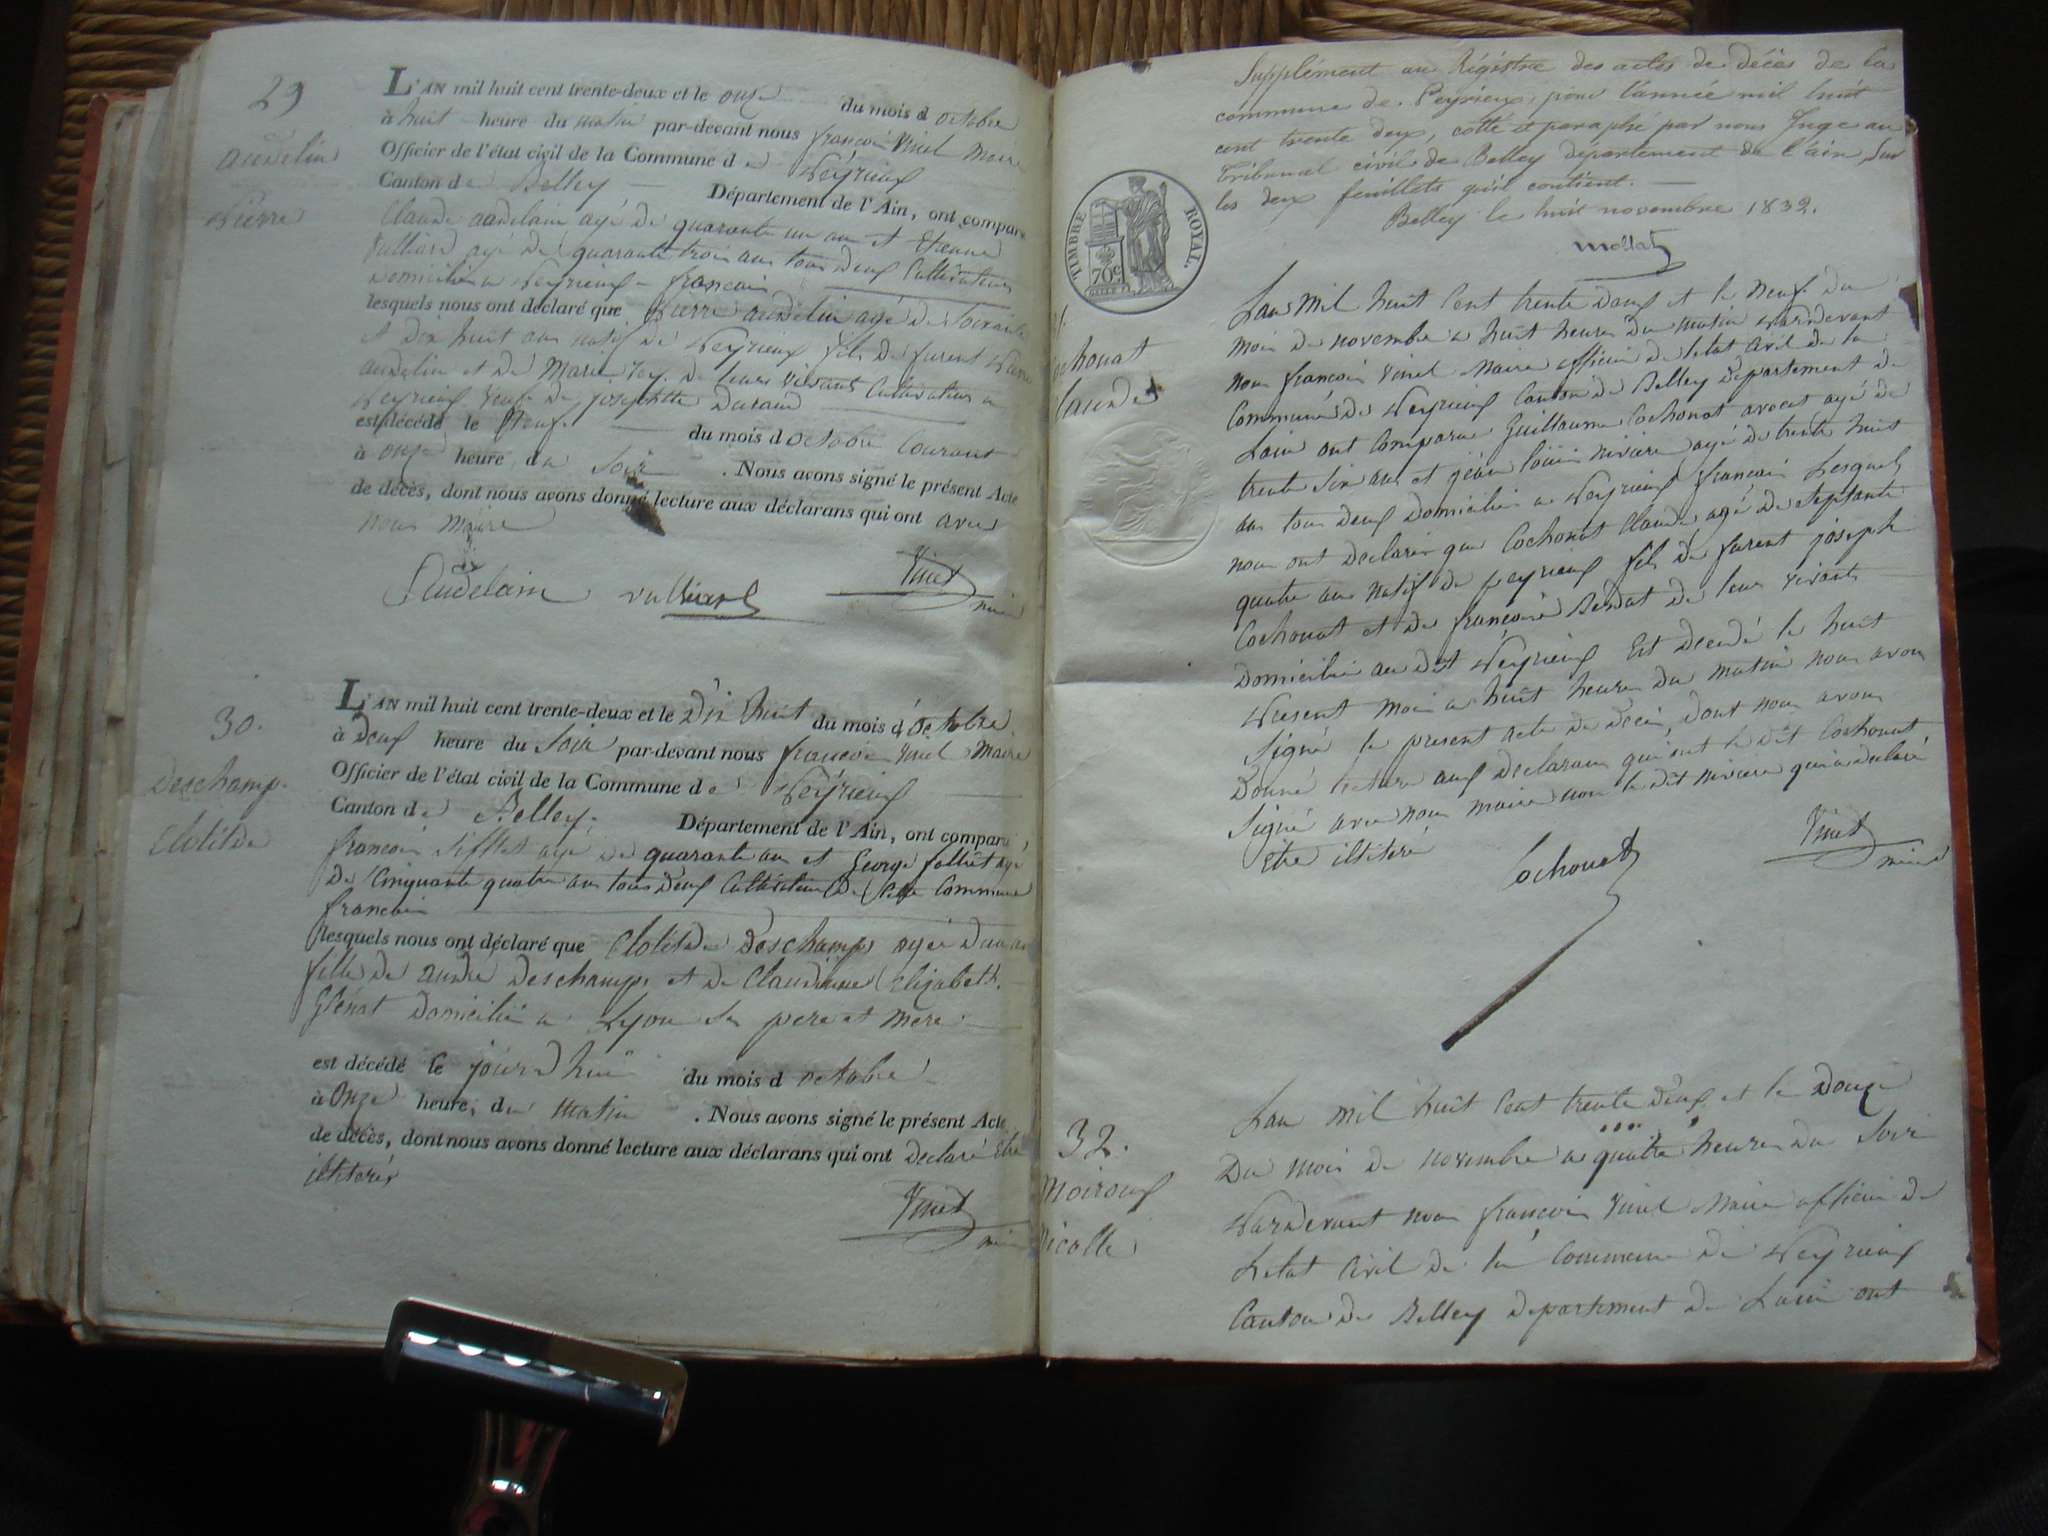 29
audelin
Pierre
L'AN mil huit cent trente-deux et le onze du mois d octobre
à huit heure du matin par-devant nous françois Vinel maire
Officier de l'état civil de la Commune d e Peyrieux
Canton d e Belley Département de l'Ain, ont comparu
Claude audelain agé de quarante un an et Etienne
Vulliard agé de quarante trois ans tous deux Cultivateurs
Domicilié a Peyrieux françois
lesquels nous ont déclaré que Pierre audelin agé de soixante
et dix huit ans natif de Peyrieux fils de furent Pierre
audelin et de Marie Rey de leurs vivants Cultivateurs a
Peyrieux veuf de josephtte Durand
est décédé le Neuf du mois d octobre Courant
à onze heure d u Soir . Nous avons signé le présent Acte
de décès, dont nous avons donné lecture aux déclarans qui ont avec
nous maire
Audelain vulliard Vinel
maire
30.
Deschamp.
Clotilde
L'AN mil huit cent trente-deux et le Dix huit du mois d'Octobre
à Deux heure du Soir par-devant nous françois Vinel Maire
Officier de l'état civil de la Commune d e Peyrieux
Canton d e Belley. Département de l'Ain, ont comparu,
françois Sifflet agé de quarante an et George follliet agé
de Cinquante quatre ans tous deux Cultivateur De Cette Commune
francais
lesquels nous ont déclaré que Clotilde Deschamps agée d'un an
fille de andré Deschamps et de Claudinne Elizabeth.
Glénat Domicilié a Lyon Ses pere et mere
est décédé le jourd'hui du mois d octobre
à Onze heure, d u Matin . Nous avons signé le présent Acte
de décès, dont nous avons donné lecture aux déclarans qui ont Declaré Etre
illiteré
Vinel
maire
Supplément au Régistre des actes de décès de la
commune de Peyrieux, pour l'année mil huit
cent trente deux, cotté et paraphé par nous Juge au
Tribunal civil de Belley département de l'ain, sur
les deux feuillets qu'il contient.
Belley le huit novembre 1832.
Mollat
TIMBRE ROYAL.
70c
ochonat
Claude
Lan Mil huit Cent trente Deux et le Neuf du
Mois de novembre a huit heures du Matin Pardevant
nous françois Vinel Maire officier de letat Civil de la
Commune de Peyrieux Canton de Belley Departement de
Lain ont Comparu Guillaume Cochonat avocat agé de
trente Six ans et jean louis riviere agé de trente huit
ans tous deux Domicilié a Peyrieux francois Lesquels
nous ont declaré que Cochonat Claude agé de septante
quatre ans Natif de Peyrieux fils de furent joseph
Cochonat et de françoise Berdat de leur vivant
Domicilié au dit Peyrieux Est Decedé le huit
Present Mois a huit heures Du Matin nous avons
Signé le present acte de Décès, Dont nous avons
Donné lecture aux Declarans qui ont le dit Cochonat
Signé avec nous maire non le dit riviere qui a declaré
Etre illiteré
Cochonat Vinel
maire
32.
Moiroux
Nicolle
Lan mil huit Cent trente Deux et le Douze
Du Mois de novembre a quatre heures Du Soir
Pardevant nous françois Vinel Maire officier de
Letat Civil de la Commune de Peyrieux
Canton de Belley departement de Lain ont